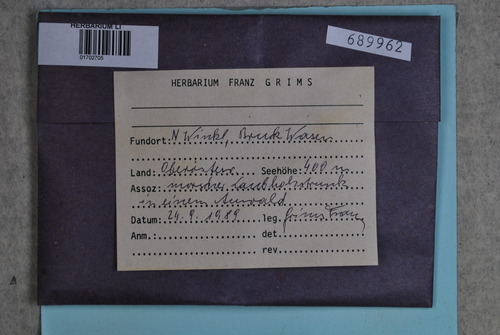 HERBARIUM LI
01702705
689962
HERBARIUM FRANZ GRIMS
Fundort: N Winkl, Bruck Wasen
Land: Oberösterr. Seehöhe: 400 m
Assoz: morscher Laubholzstrunk
in einem Auwald
Datum: 24.9.1989 leg. Grims Franz
Anm.: det.
rev.